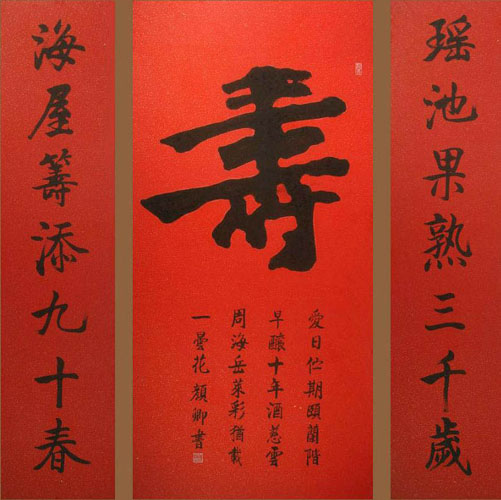 瑶池果熟三千歲
壽
愛日伫期頤蘭階
早釀十年酒慈雲
周海岳萊彩猶載
一曇花顏卿書
海屋籌添九十春